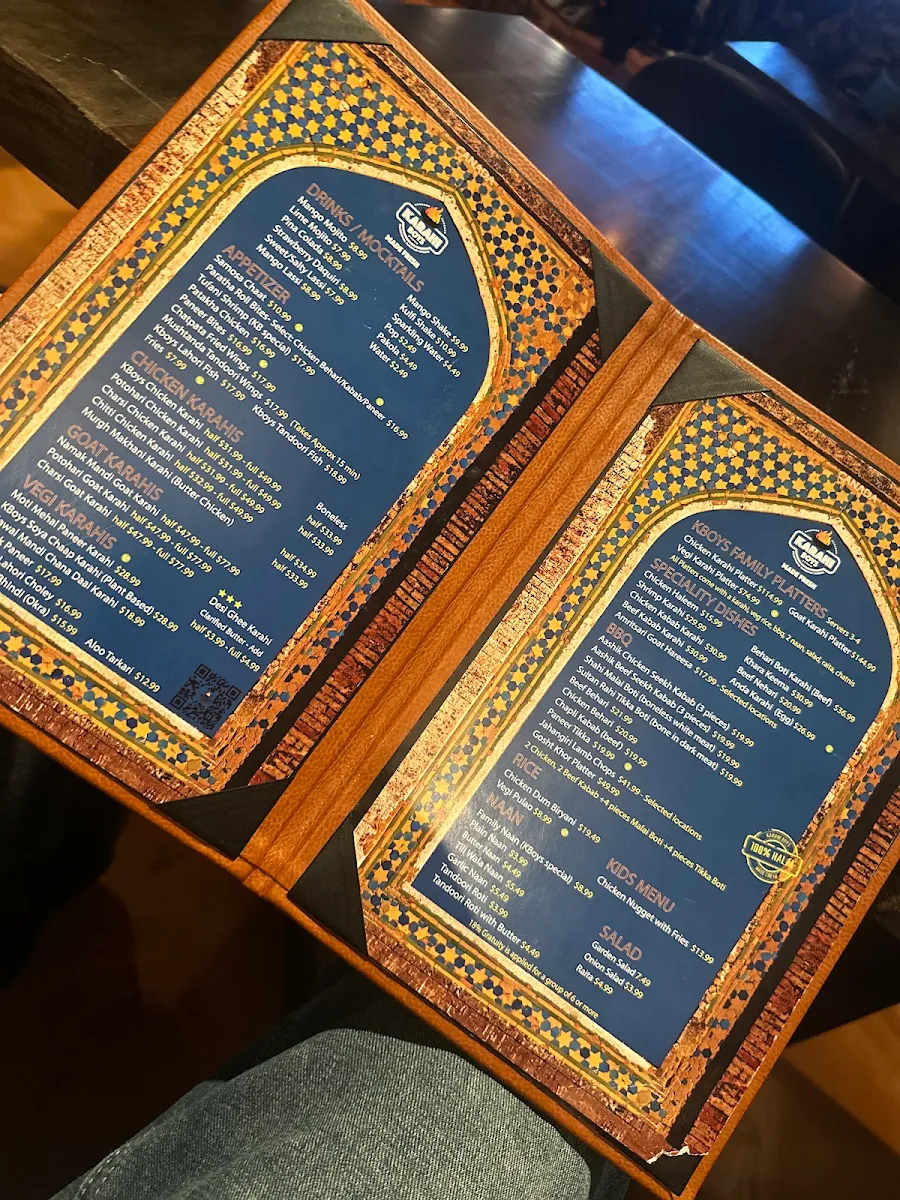 KARAHI
BOYS
MADE FRESH
DRINKS / MOCKTAILS
Mango Mojito $8.99
Lime Mojito $7.99
Pina Colada $8.99
Strawberry Daquiri $8.99
Sweet/Salty Lassi $7.99
Mango Lassi $8.99
Mango Shake $9.99
Kulfi Shake $10.99
Sparkling Water $4.49
Pop $2.49
Pakola $4.49
Water $2.49
APPETIZER
Samosa Chaat $10.99
Paratha Roll Bites- Select: Chicken Behari/Kabab/Paneer $16.99
Tufani Shrimp (KB Special) $17.99
Patakha Chicken $16.99
Paneer Bites $16.99
Chatpata Fried Wings $17.99
Mushtanda Tandoori Wings $17.99 (Takes Approx 15 min)
Kboys Lahori Fish $17.99
Kboys Tandoori Fish $18.99
Fries $7.99
CHICKEN KARAHIS
Boneless
KBoys Chicken Karahi half $31.99 - full $49.99
half $33.99
Potohari Chicken Karahi half $31.99 - full $49.99
half $33.99
Charsi Chicken Karahi half $31.99 - full $49.99
Chitti Chicken Karahi half $32.99 - full $49.99
half $34.99
Murgh Makhani Karahi (Butter Chicken)
half $33.99
GOAT KARAHIS
Namak Mandi Goat Karahi half $47.99 - full $77.99
Potohari Goat Karahi half $47.99 - full $77.99
Charsi Goat Karahi half $47.99 - full $77.99
Desi Ghee Karahi
Clarified Butter - Add
half $3.99 - full $4.99
VEGI KARAHIS
Moti Mehal Paneer Karahi $28.99
KBoys Soya Chaap Karahi (Plant Based) $28.99
Mandi Chana Daal Karahi $18.99
Paneer $17.99
Lahori Choley $16.99
Bhindi (Okra) $15.99
Aloo Tarkari $12.99
KARAHI
BOYS
MADE FRESH
KBOYS FAMILY PLATTERS - Servers 3-4
Chicken Karahi Platter $114.99
Goat Karahi Platter $144.99
Vegi Karahi Platter $74.99
All Platters come with a karahi, veg rice, bbq, 2 nan, salad, raita, chatnis
SPECIALITY DISHES
Chicken Haleem $15.99
Shrimp Karahi $29.99
Chicken Kabab Karahi $30.99
Beef Kabab Karahi $30.99
Amritsari Goat Hareesa $17.99 - Selected locations
Behari Boti Karahi (Beef) $36.99
Khara Keema $30.99
Beef Nehari $20.99
Anda Karahi (Egg) $26.99
BBQ
Aashik Chicken Seekh Kabab (3 pieces) $19.99
Aashik Beef Seekh Kabab (3 pieces) $19.99
Shahi Malai Boti (boneless white meat) $19.99
Sultan Rahi Tikka Boti (bone in dark meat) $19.99
Beef Behari $21.99
Chicken Behari $20.99
Chapli Kabab (beef) $19.99
Paneer Tikka $19.99
Jahangiri Lamb Chops $41.99 - Selected locations
Gosht Khor Platter $49.99
2 Chicken, 2 Beef Kabab +4 pieces Malai Boti +4 pieces Tikka Boti
RICE
Chicken Dum Biryani $19.49
Vegi Pulao $8.99
NAAN
Family Naan (KBoys special) $8.99
Plain Naan $3.99
Butter Naan $4.49
Till Wala Naan $5.49
Garlic Naan $5.49
Tandoori Roti $3.99
Tandoori Roti with Butter $4.49
KIDS MENU
Chicken Nugget with Fries $13.99
SALAD
Garden Salad 7.49
Onion Salad $3.99
Raita $4.99
100% HALAL
18% Gratuity is applied for a group of 6 or more